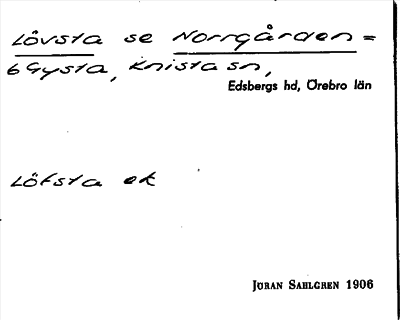 Lövsta se Norrgården =
Gysta, Knista sn,
Edsbergs hd, Örebro län
Löfsta ek
Jöran Sahlgren 1906